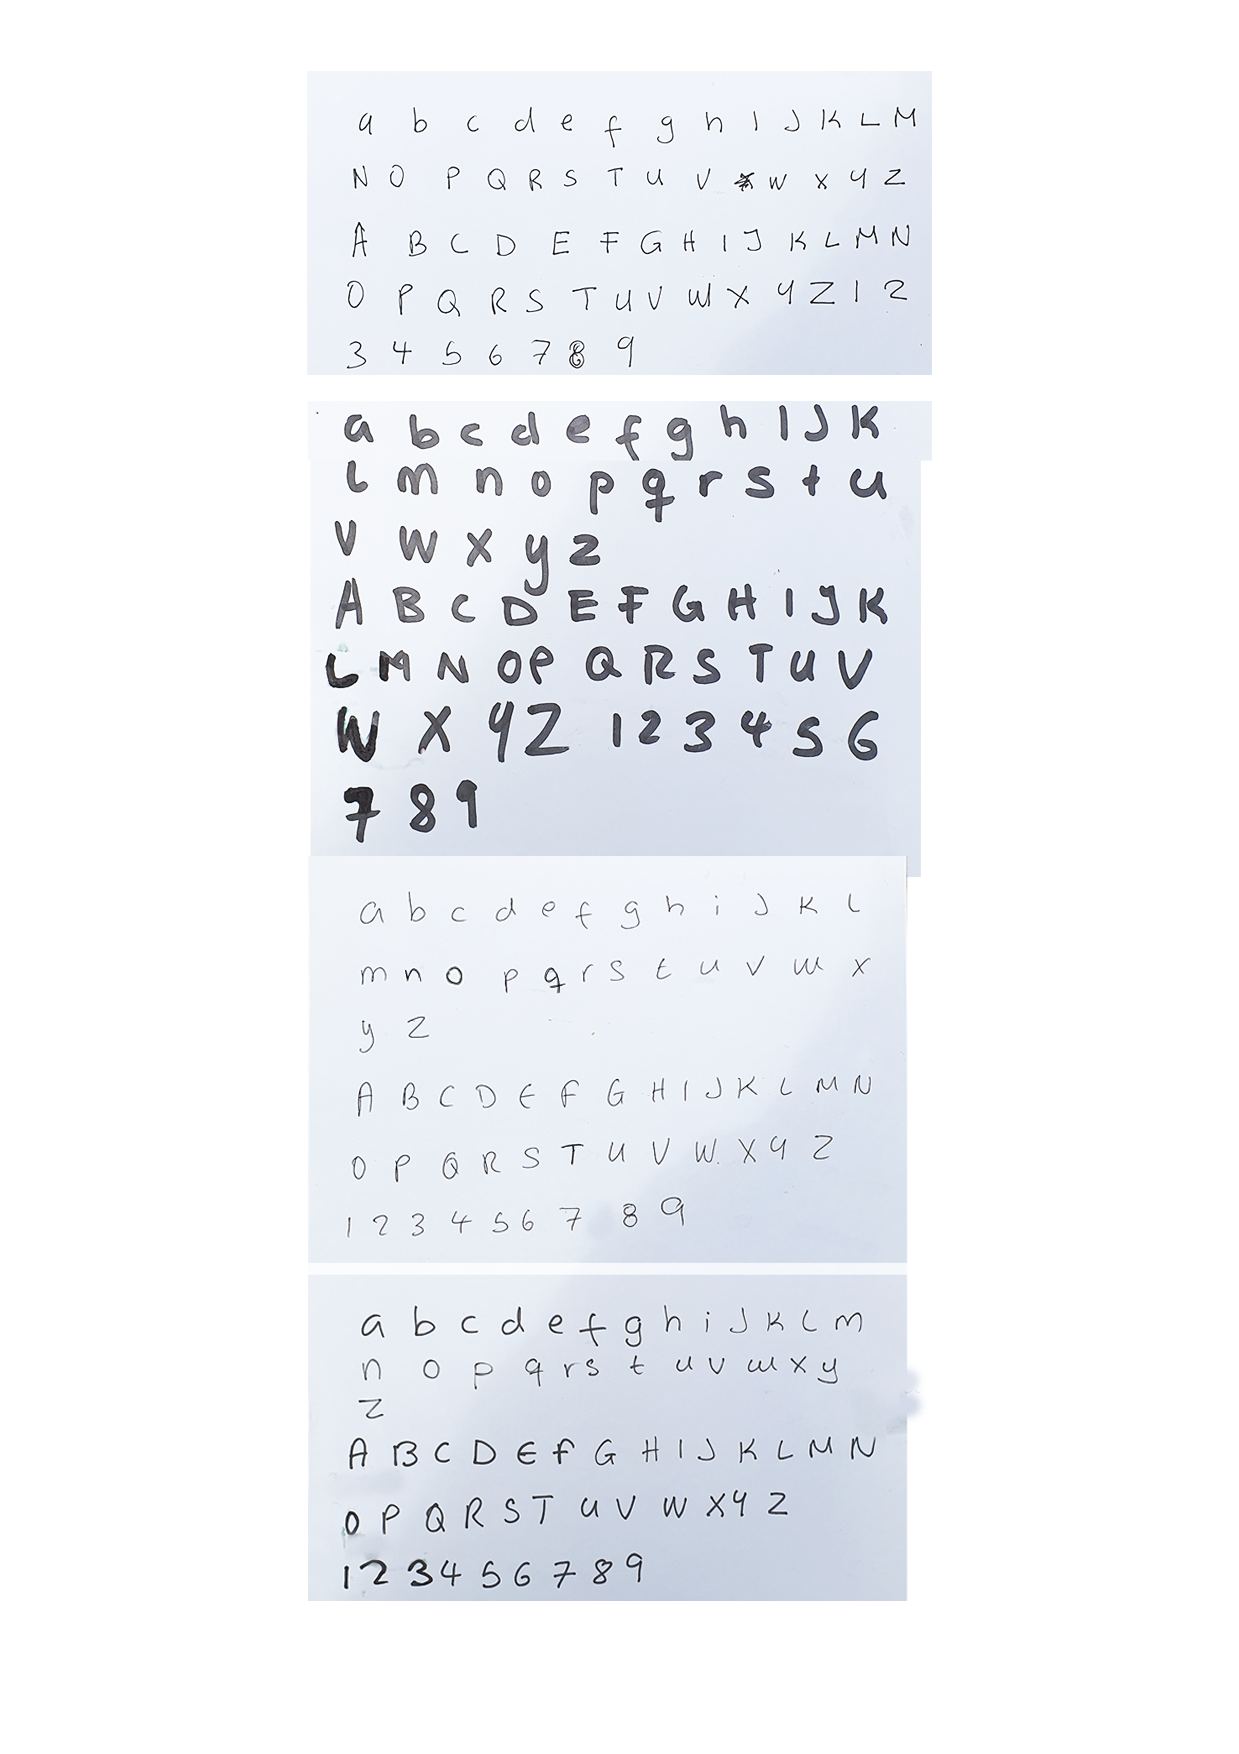 a b c d e f g h I J K L M
N O P Q R S T U V W X Y Z
A B C D E F G H I J K L M N
O P Q R S T U V W X Y Z 1 2
3 4 5 6 7 8 9
a b c d e f g h I J K
L m n o p q r s t u
V W X y z
A B C D E F G H I J K
L M N O P Q R S T U V
W X Y Z 1 2 3 4 5 6
7 8 9
a b c d e f g h i J K L
m n o p q r s t u v w x
y z
A B C D E F G H I J K L M N
O P Q R S T U V W X Y Z
1 2 3 4 5 6 7 8 9
a b c d e f g h i J K L m
n o p q r s t u v w x y
z
A B C D E f G H I J K L M N
O P Q R S T U V W X Y Z
1 2 3 4 5 6 7 8 9